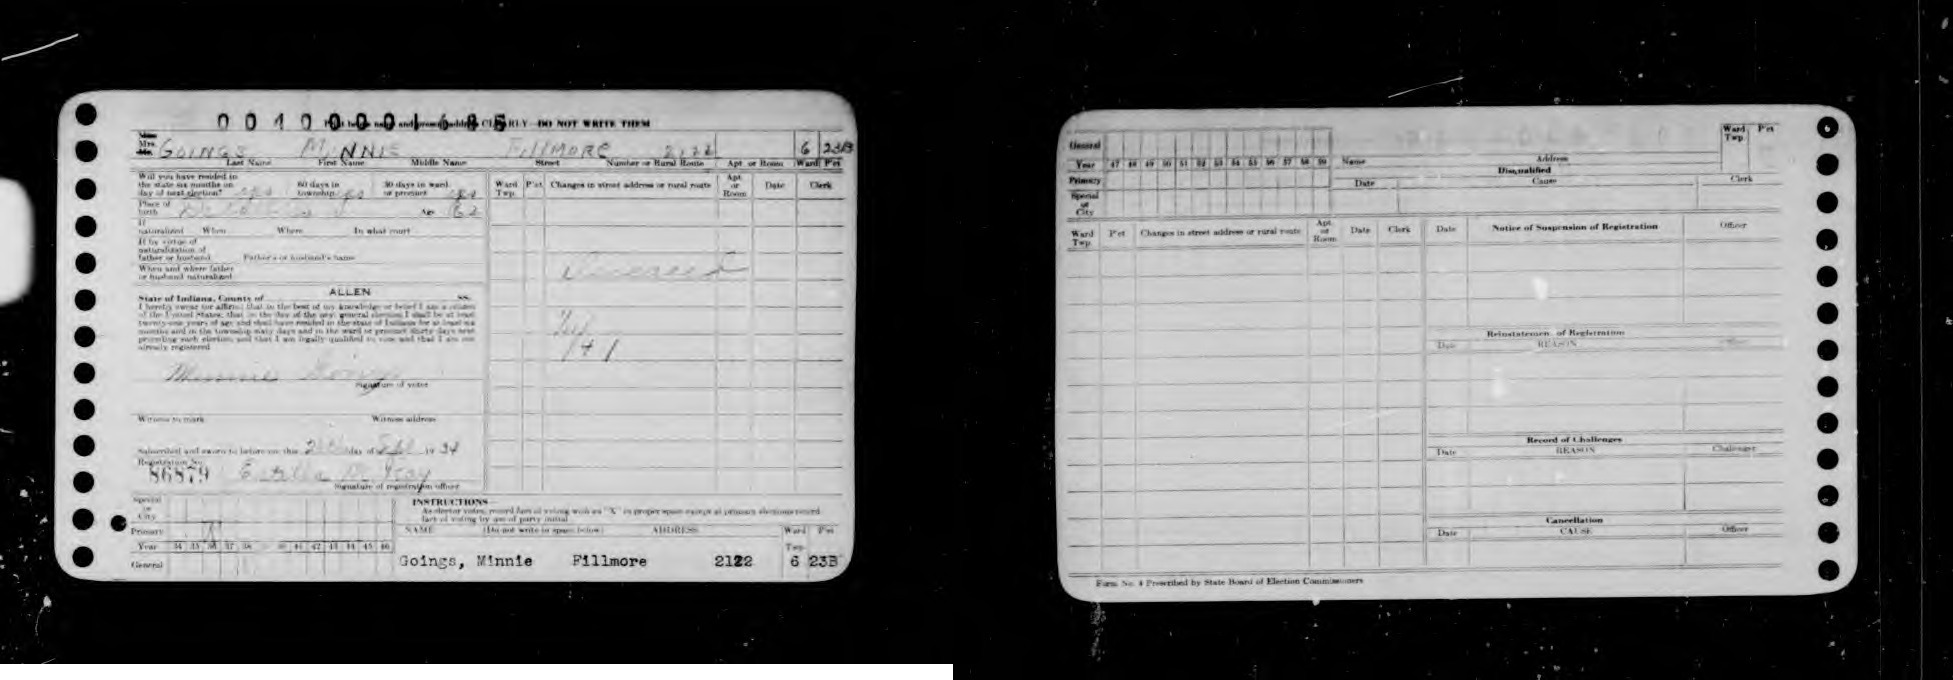 00100001685
Print below name and present address CLEARLY—DO NOT WRITE THEM
Miss
Mrs.
Mr.
GOINGS MINNIE FILLMORE 2122 6 23B
Last Name First Name Middle Name Street Number or Rural Route Apt. or Room Ward P'ct
Will you have resided in
the state six months on 60 days in 30 days in ward
day of next election? yes township yes or precinct yes
Place of
birth Age 62
If
naturalized When Where In what court
If by virtue of
naturalization of
father or husband Father's or husband's name
When and where father
or husband naturalized
State of Indiana, County of ALLEN ss.
I hereby swear (or affirm) that to the best of my knowledge or belief I am a citizen
of the United States, that on the day of the next general election I shall be at least
twenty-one years of age and shall have resided in the state of Indiana for at least six
months and in the township sixty days and in the ward or precinct thirty days next
preceding such election, and that I am legally qualified to vote and that I am not
already registered
Minnie Goings
Signature of voter
Witness to mark Witness address
Subscribed and sworn to before me this day of 19 34
Registration No.
86879
Signature of registration officer
Ward
Twp.
P'ct
Changes in street address or rural route
Apt.
or
Room
Date
Clerk
Deceased
/41
Special
or
City
Primary
Year 34 35 36 37 38 39 41 42 43 44 45 46
General
INSTRUCTIONS
As elector votes, record fact of voting with an "X" in proper space except at primary elections record
fact of voting by use of party initial
NAME (Do not write in space below) ADDRESS Ward P'ct
Twp.
Goings, Minnie Fillmore 2122 6 23B
General
Year 47 48 49 50 51 52 53 54 55 56 57 58 59
Primary
Special
or
City
Name Address
Ward
Twp.
P'ct
Disqualified
Date Cause Clerk
Ward
Twp.
P'ct
Changes in street address or rural route
Apt.
or
Room
Date
Clerk
Date Notice of Suspension of Registration Officer
Reinstatement of Registration
Date REASON Officer
Record of Challenges
Date REASON Challenger
Cancellation
Date CAUSE Officer
Form No. 4 Prescribed by State Board of Election Commissioners